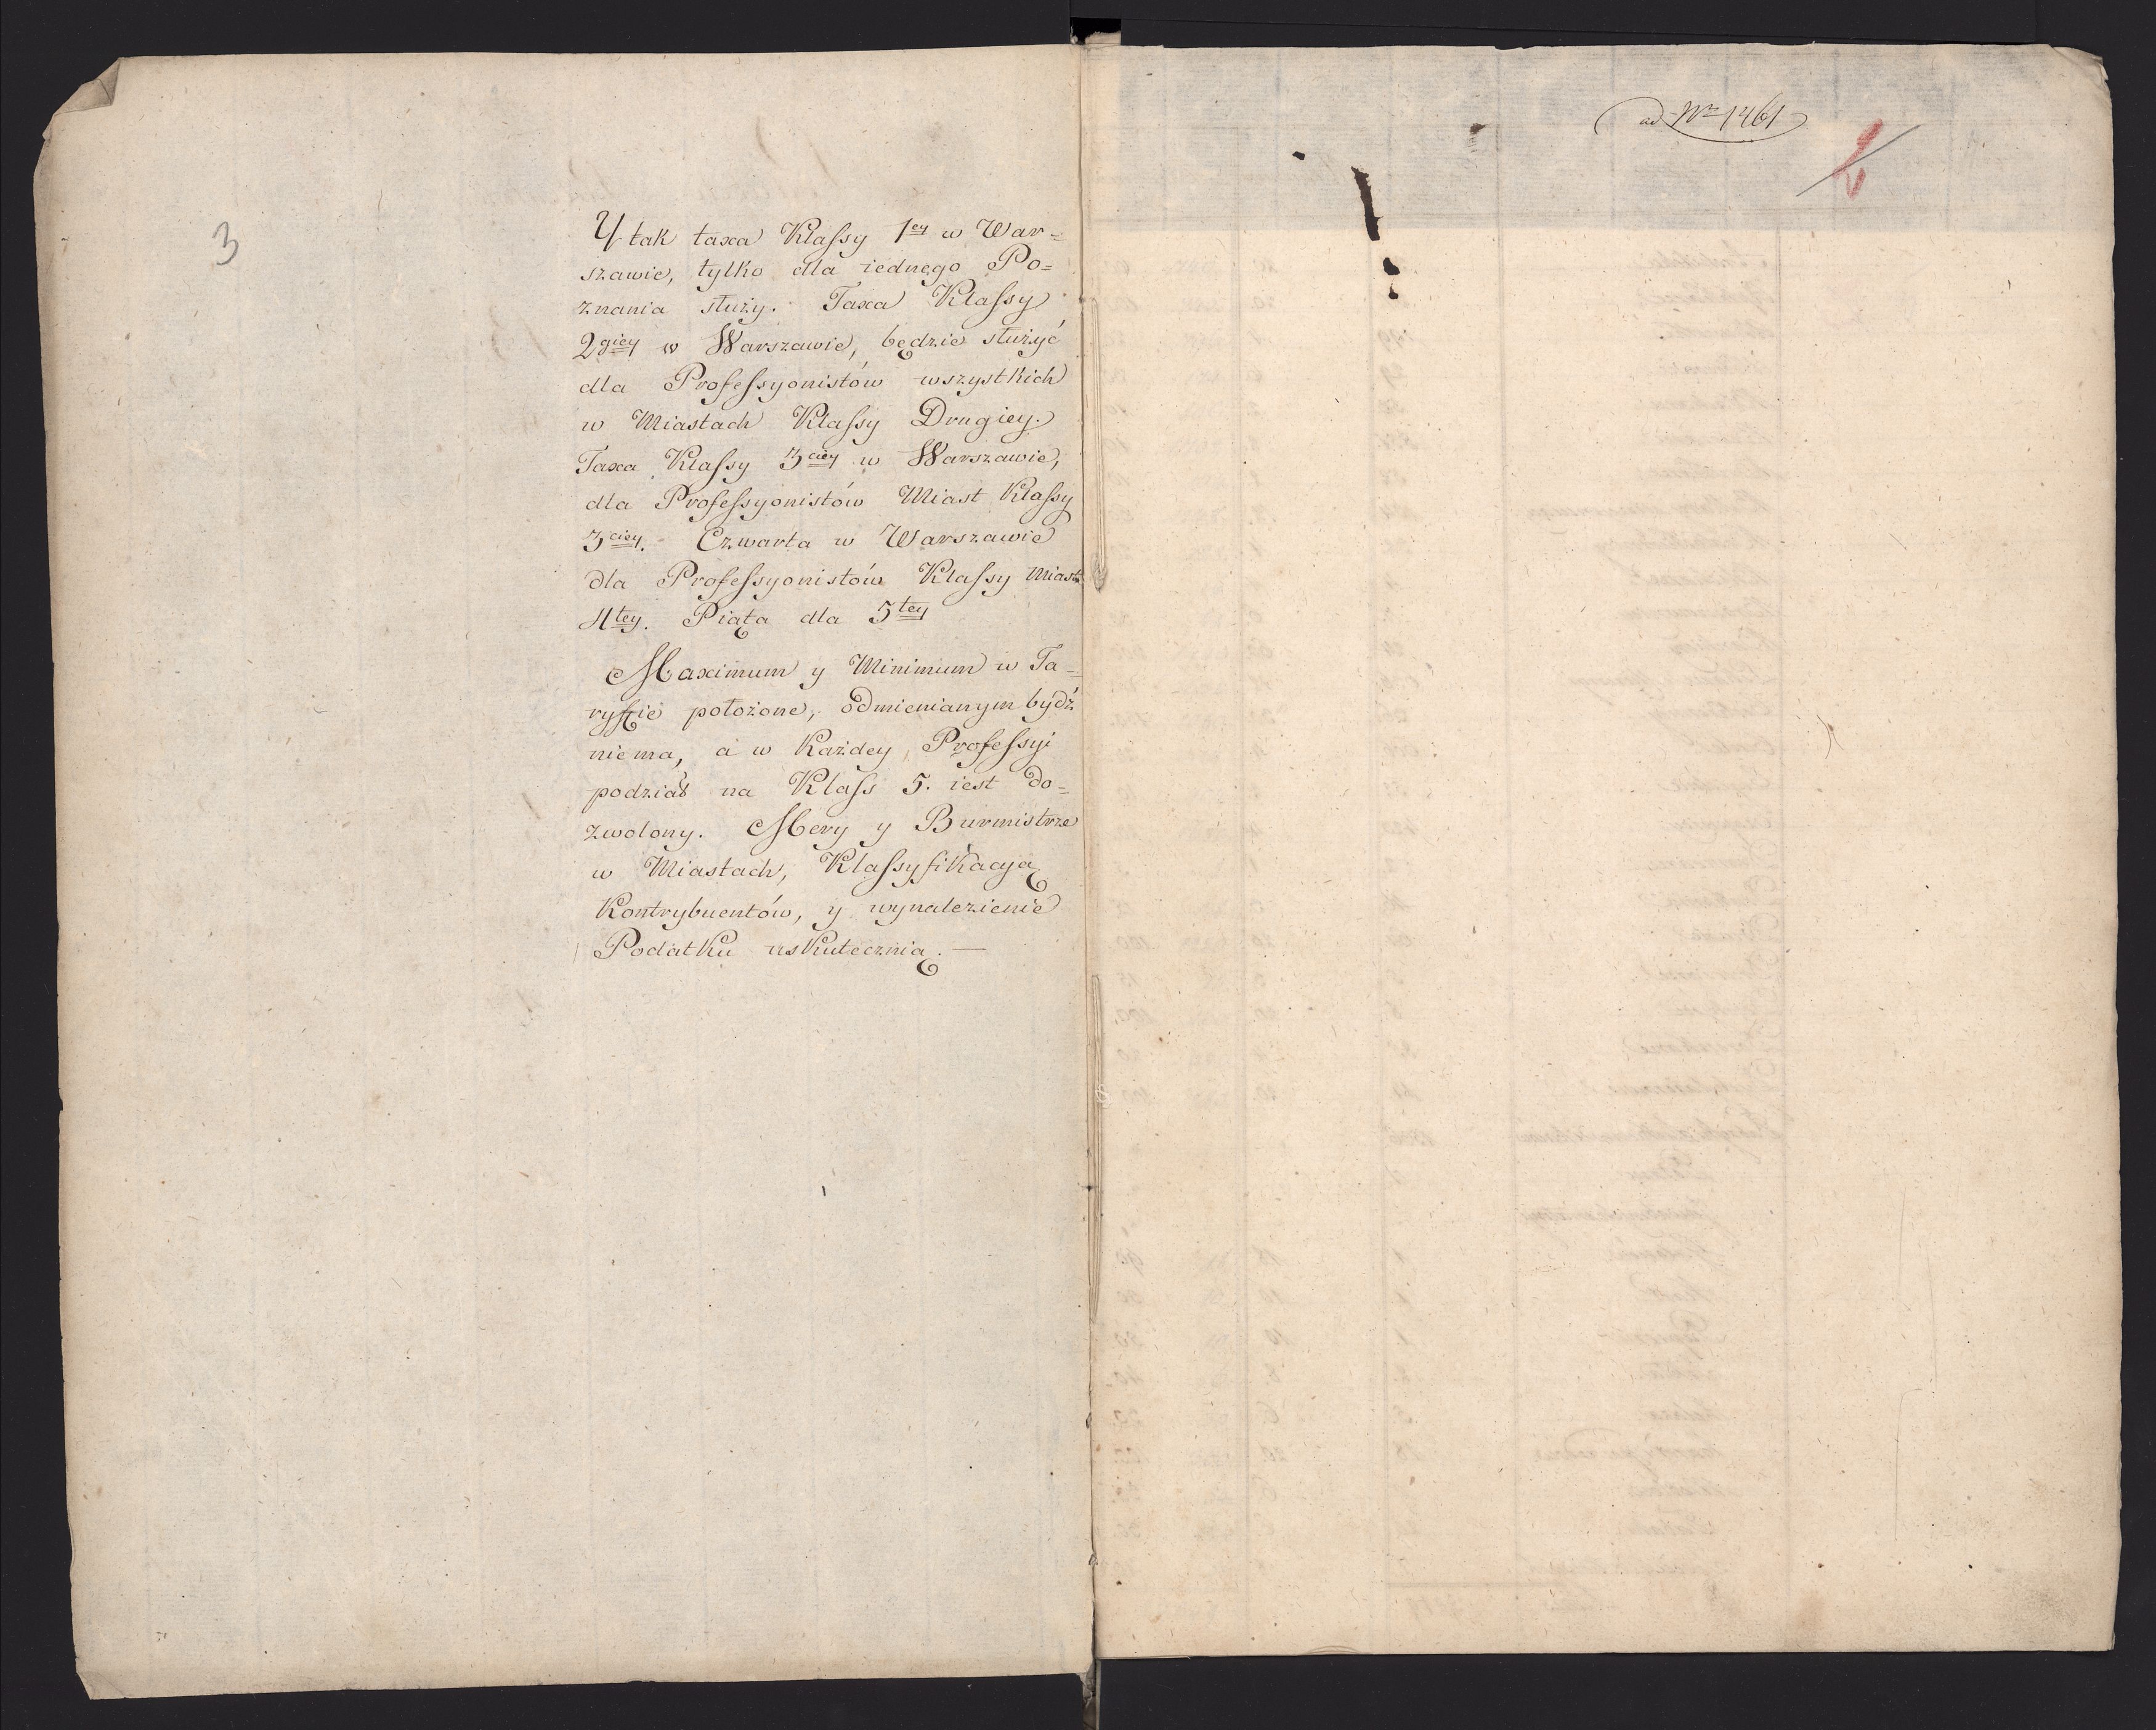 3
Y tak taxa Klassy 1ey w War=
szawie, tylko dla iednego Po=
znania służy. Taxa Klassy
2giey w Warszawie, będzie służyć
dla Professyonistów wszystkich
w Miastach Klassy Drugiey.
Taxa Klassy 3ciey w Warszawie,
dla Professyonistów Miast Klassy
3ciey. Czwarta w Warszawie
dla Professyonistów Klassy Miast
4tey. Piąta dla 5tey
Maximum y Minimum w Ta=
ryffie położone, odmienianym bydź
niema, a w Każdey Professyi
podział na Klass 5. iest do=
zwolony. Mery y Burmistrze
w Miastach, Klassyfikacyą
Kontrybuentów, y wynalezienie
Podatku uskutecznią. —
ad Nr 1461